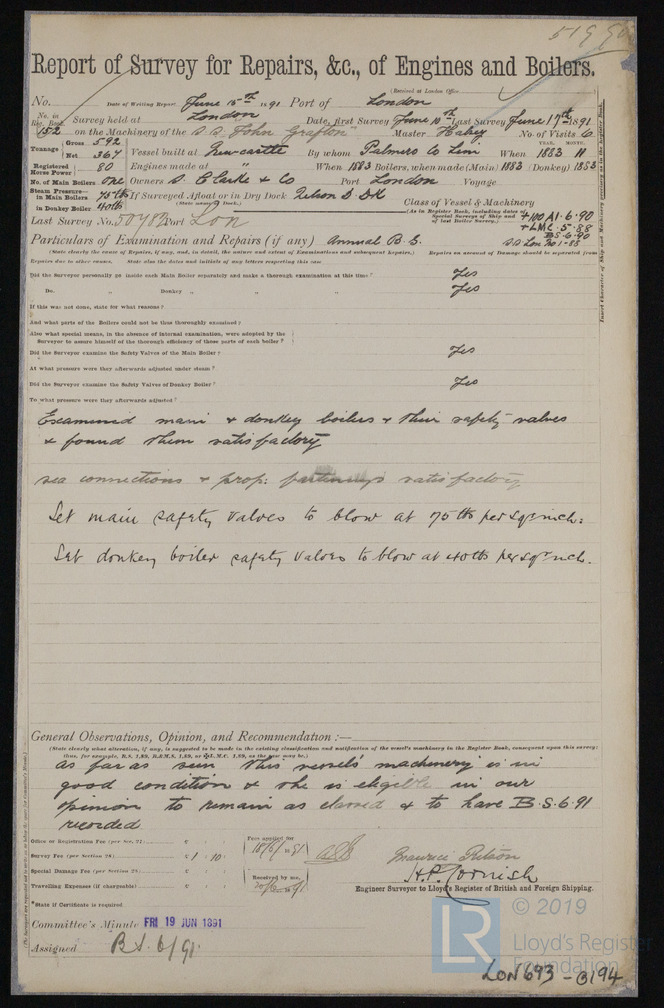 519
Report of Survey for Repairs, &c., of Engines and Boilers.
(Received at London Office
No. Date of Writing Report June 15th 1891 Port of London
No. in Reg. Book. 152 Survey held at London Date, first Survey June 10th Last Survey June 17th 1891
on the Machinery of the S.S. "John Grafton" Master Halsey No. of Visits 6
Tonnage Gross 592 Net 367 Vessel built at Newcastle By whom Palmers Co Lim When YEAR. 1883 MONTH. 11
Registered Horse Power 80 Engines made at " When 1883 Boilers, when made (Main) 1883 (Donkey) 1883
No. of Main Boilers One Owners S. Clarke & Co Port London Voyage
Steam Pressure in Main Boilers 75 lb If Surveyed Afloat or in Dry Dock Nelson D DK
(State name of Dock.)
in Donkey Boiler 40 lb Class of Vessel & Machinery
(As in Register Book, including dates of Special Surveys of Ship and of last Boiler Survey.) +100 A1·6·90
+LMC·5·88
BS·6·90
SS Lon No 1-88
Last Survey No. 50782 Port Lon
Particulars of Examination and Repairs (if any) Annual B.S.
(State clearly the cause of Repairs, if any, and, in detail, the nature and extent of Examinations and subsequent Repairs.) Repairs on account of Damage should be separated from
Repairs due to other causes. State also the dates and initials of any letters respecting this case
Did the Surveyor personally go inside each Main Boiler separately and make a thorough examination at this time? Yes
Do. " Donkey " " " Yes
If this was not done, state for what reasons?
And what parts of the Boilers could not be thus thoroughly examined?
Also what special means, in the absence of internal examination, were adopted by the
Surveyor to assure himself of the thorough efficiency of those parts of each boiler?
Did the Surveyor examine the Safety Valves of the Main Boiler? Yes
At what pressure were they afterwards adjusted under steam?
Did the Surveyor examine the Safety Valves of Donkey Boiler? Yes
To what pressure were they afterwards adjusted?
Examined main & donkey boilers & their safety valves
& found them satisfactory
sea connections & prop: fastenings satisfactory
Set main safety valves to blow at 75 lbs per sqr inch.
Set donkey boiler safety valves to blow at 40 lbs per sqr inch.
General Observations, Opinion, and Recommendation :—
(State clearly what alteration, if any, is suggested to be made in the existing classification and notification of the vessel's machinery in the Register Book, consequent upon this survey;
thus, for example, B.S. 1,89, B.&M.S. 1,89, or L.M.C. 1,89, as the case may be.)
As far as seen this vessels' machinery is in
good condition & she is eligible in our
opinion to remain as classed & to have B.S.6.91
recorded
Office or Registration Fee (per Sec. 27) £ : :
Survey Fee (per Section 28) £ 1 : 10 :
Special Damage Fee (per Section 28) £ : :
Travelling Expenses (if chargeable) £ : :
Fees applied for 18/6/1891
Received by me, 20/6/1891
Maurice Pitson
H. P. Cornish
Engineer Surveyor to Lloyd's Register of British and Foreign Shipping.
*State if Certificate is required
Committee's Minute FRI 19 JUN 1891
Assigned B.S. 6/91
© 2019
LR
Lloyd's Register
Foundation
LON693-0194